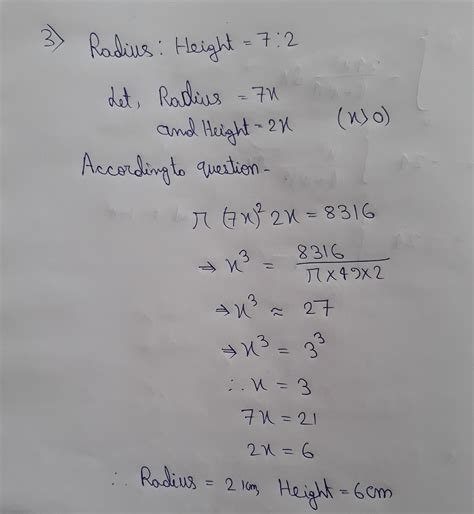 3) Radius : Height = 7:2
Let, Radius = 7x
and Height = 2x (x>0)
According to question -
π (7x)² 2x = 8316
⇒ x³ = 8316 / π×49×2
⇒ x³ ≈ 27
⇒ x³ = 3³
∴ x = 3
7x = 21
2x = 6
∴ Radius = 21cm, Height = 6cm